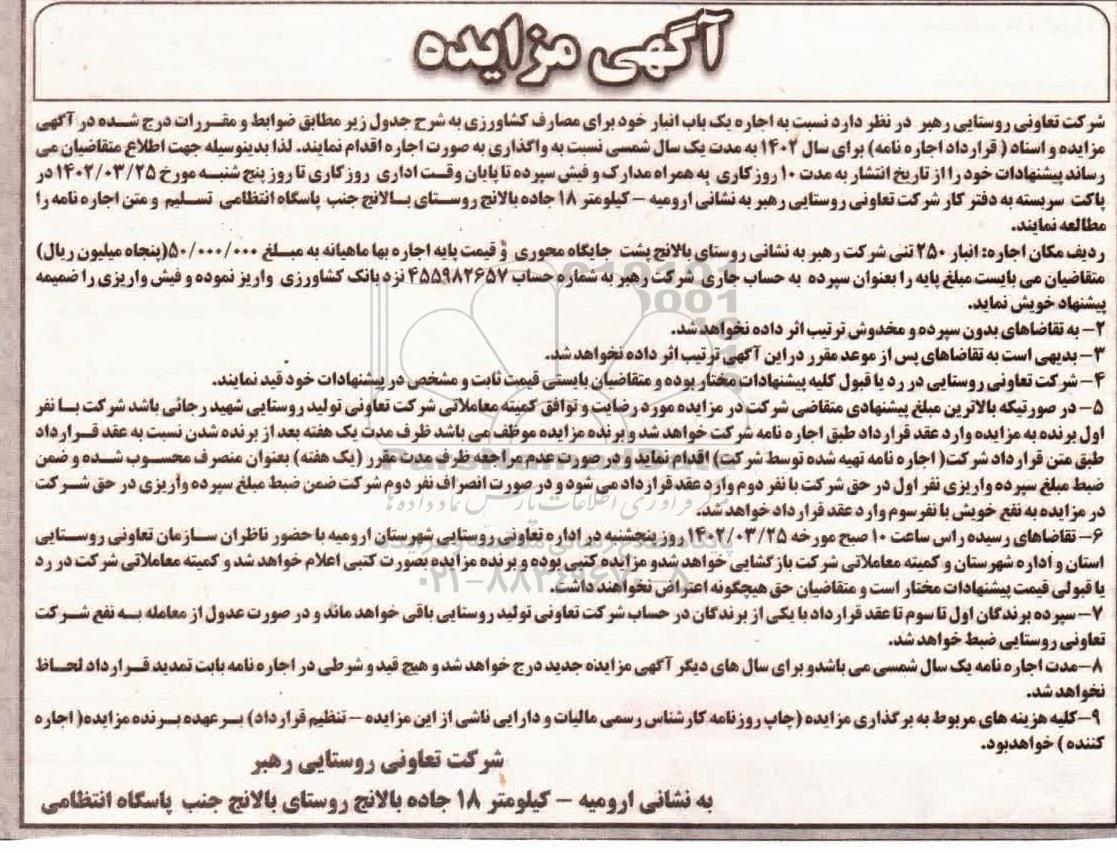 آگهی مزایده
شرکت تعاونی روستایی رهبر در نظر دارد نسبت به اجاره یک باب انبار خود برای مصارف کشاورزی به شرح جدول زیر مطابق ضوابط و مقررات درج شده در آگهی
مزایده و اسناد ( قرارداد اجاره نامه) برای سال ۱۴۰۲ به مدت یک سال شمسی نسبت به واگذاری به صورت اجاره اقدام نمایند. لذا بدینوسیله جهت اطلاع متقاضیان می
رساند پیشنهادات خود را از تاریخ انتشار به مدت ۱۰ روز کاری به همراه مدارک و فیش سپرده تا پایان وقت اداری روز کاری تا روز پنج شنبه مورخ ۱۴۰۲/۰۳/۲۵ در
پاکت سربسته به دفتر کار شرکت تعاونی روستایی رهبر به نشانی ارومیه – کیلومتر ۱۸ جاده بالانج روستای بالانج جنب پاسگاه انتظامی تسلیم و متن اجاره نامه را
مطالعه نمایند.
ردیف مکان اجاره: انبار ۲۵۰ تنی شرکت رهبر به نشانی روستای بالانج پشت جایگاه محوری و قیمت پایه اجاره بها ماهیانه به مبلغ ۵۰/۰۰۰/۰۰۰(پنجاه میلیون ریال)
متقاضیان می بایست مبلغ پایه را بعنوان سپرده به حساب جاری شرکت رهبر به شماره حساب ۴۵۵۹۸۲۶۵۷ نزد بانک کشاورزی واریز نموده و فیش واریزی را ضمیمه
پیشنهاد خویش نماید.
۲– به تقاضاهای بدون سپرده و مخدوش ترتیب اثر داده نخواهد شد.
۳– بدیهی است به تقاضاهای پس از موعد مقرر در این آگهی ترتیب اثر داده نخواهد شد.
۴– شرکت تعاونی روستایی در رد یا قبول کلیه پیشنهادات مختار بوده و متقاضیان بایستی قیمت ثابت و مشخص در پیشنهادات خود قید نمایند.
۵– در صورتیکه بالاترین مبلغ پیشنهادی متقاضی شرکت در مزایده مورد رضایت و توافق کمیته معاملاتی شرکت تعاونی تولید روستایی شهید رجائی باشد شرکت با نفر
اول برنده به مزایده وارد عقد قرارداد طبق اجاره نامه شرکت خواهد شد و برنده مزایده موظف می باشد ظرف مدت یک هفته بعد از برنده شدن نسبت به عقد قرارداد
طبق متن قرارداد شرکت( اجاره نامه تهیه شده توسط شرکت) اقدام نماید و در صورت عدم مراجعه ظرف مدت مقرر (یک هفته) بعنوان منصرف محسوب شده و ضمن
ضبط مبلغ سپرده واریزی نفر اول در حق شرکت با نفر دوم وارد عقد قرارداد می شود و در صورت انصراف نفر دوم شرکت ضمن ضبط مبلغ سپرده واریزی در حق شرکت
در مزایده به نفع خویش با نفر سوم وارد عقد قرارداد خواهد شد.
۶– تقاضاهای رسیده راس ساعت ۱۰ صبح مورخه ۱۴۰۲/۰۳/۲۵ روز پنجشنبه در اداره تعاونی روستایی شهرستان ارومیه با حضور ناظران سازمان تعاونی روستایی
استان و اداره شهرستان و کمیته معاملاتی شرکت بازگشایی خواهد شدو مزایده کتبی بوده و برنده مزایده بصورت کتبی اعلام خواهد شد و کمیته معاملاتی شرکت در رد
یا قبولی قیمت پیشنهادات مختار است و متقاضیان حق هیچگونه اعتراض نخواهند داشت.
۷– سپرده برندگان اول تا سوم تا عقد قرارداد با یکی از برندگان در حساب شرکت تعاونی تولید روستایی باقی خواهد ماند و در صورت عدول از معامله به نفع شرکت
تعاونی روستایی ضبط خواهد شد.
۸–مدت اجاره نامه یک سال شمسی می باشدو برای سال های دیگر آگهی مزایده جدید درج خواهد شد و هیچ قید و شرطی در اجاره نامه بابت تمدید قرارداد لحاظ
نخواهد شد.
۹–کلیه هزینه های مربوط به برگذاری مزایده (چاپ روزنامه کارشناس رسمی مالیات و دارایی ناشی از این مزایده – تنظیم قرارداد) برعهده برنده مزایده( اجاره
کننده ) خواهدبود.
شرکت تعاونی روستایی رهبر
به نشانی ارومیه – کیلومتر ۱۸ جاده بالانج روستای بالانج جنب پاسگاه انتظامی
ParsNamadData
۰۲۱–۸۸۳۴۹۶۷۰–۵